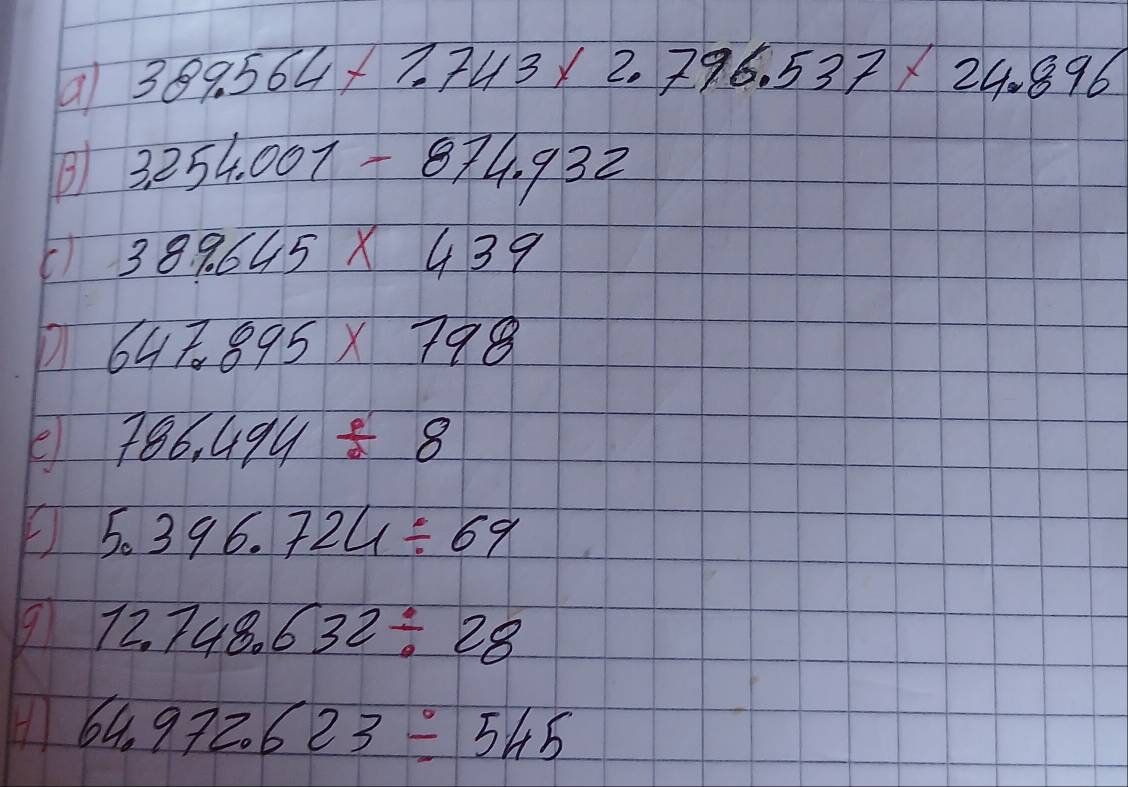 a) 389.564 + 1.743 + 2.796.537 + 24.896
B) 3.254.001 - 874.932
c) 389.645 x 439
D) 647.895 x 798
e) 786.494 ÷ 8
F) 5.396.724 ÷ 69
g) 12.748.632 ÷ 28
H) 64.972.623 ÷ 545